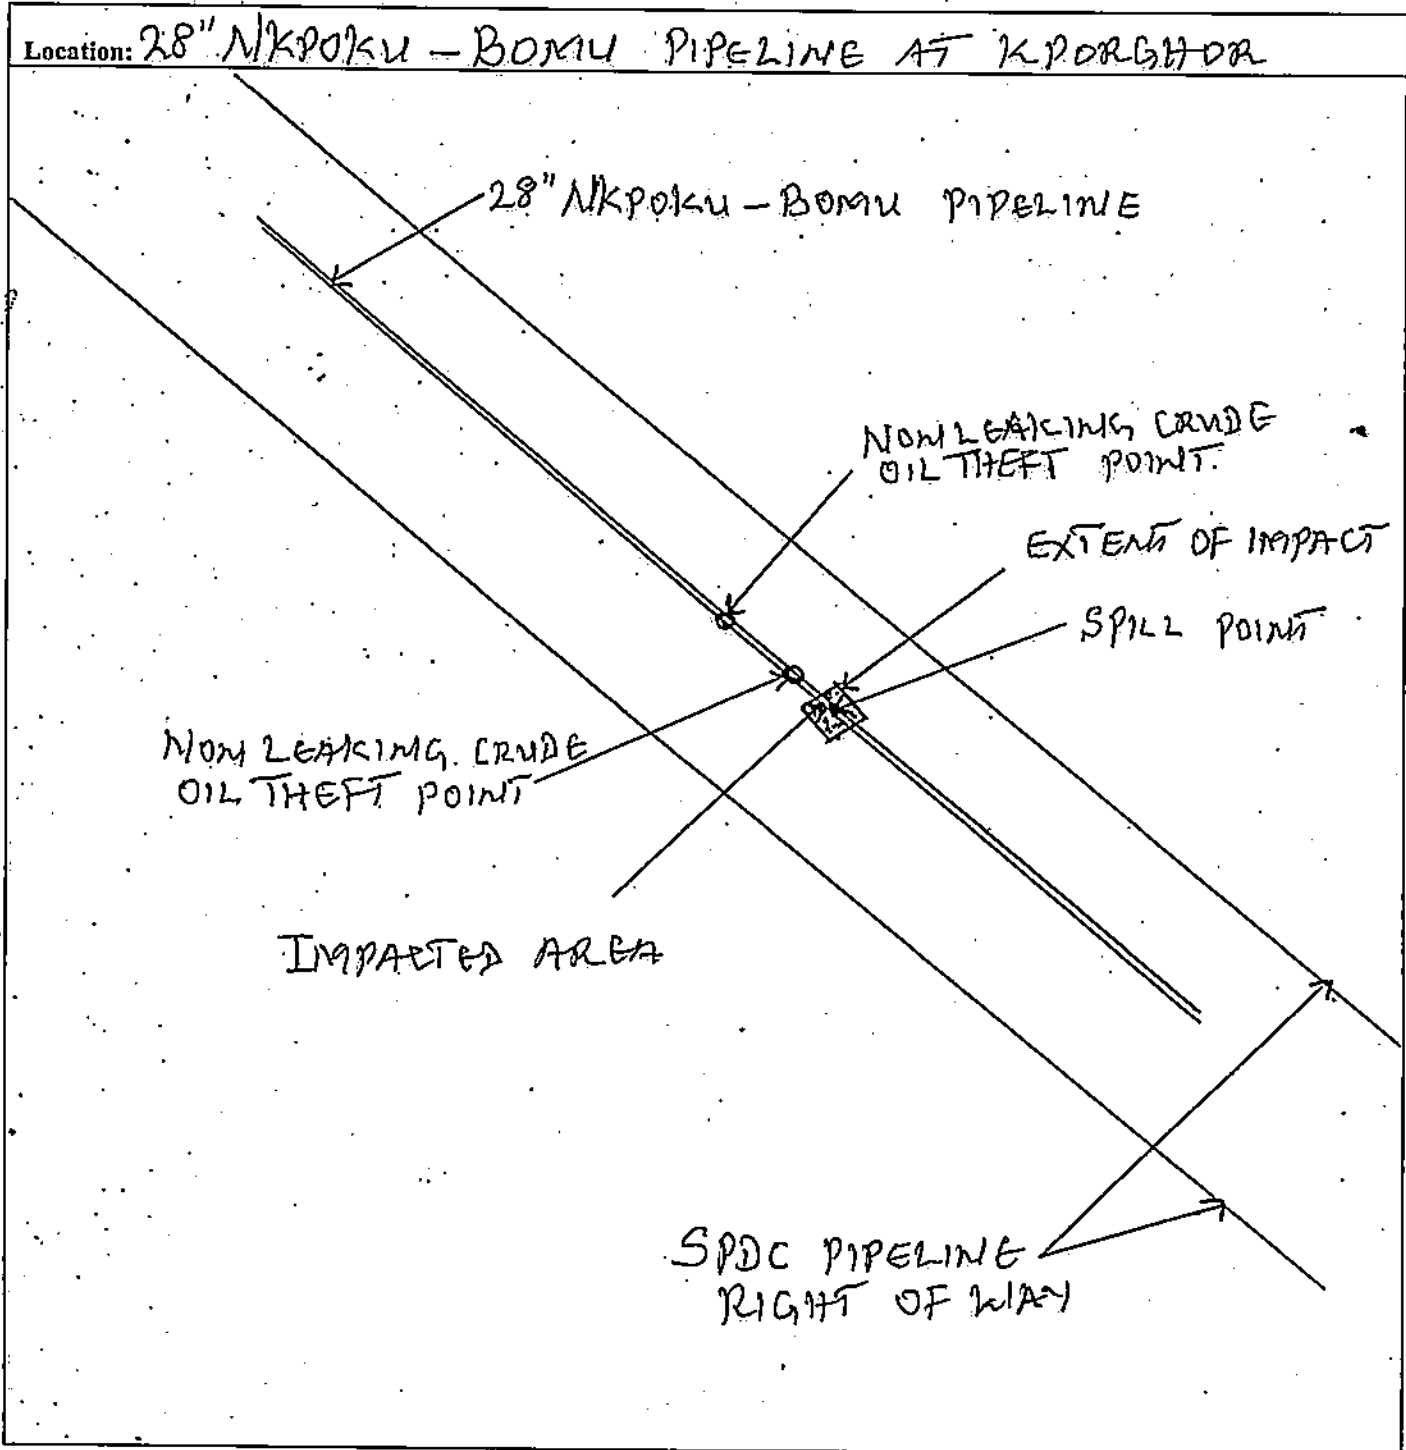 Location: 28" NKPOKU - BOMU PIPELINE AT KPORGHOR
28" NKPOKU - BOMU PIPELINE
NON LEAKING CRUDE
OIL THEFT POINT.
EXTENT OF IMPACT
SPILL POINT
NON LEAKING CRUDE
OIL THEFT POINT
IMPACTED AREA
SPDC PIPELINE
RIGHT OF WAY